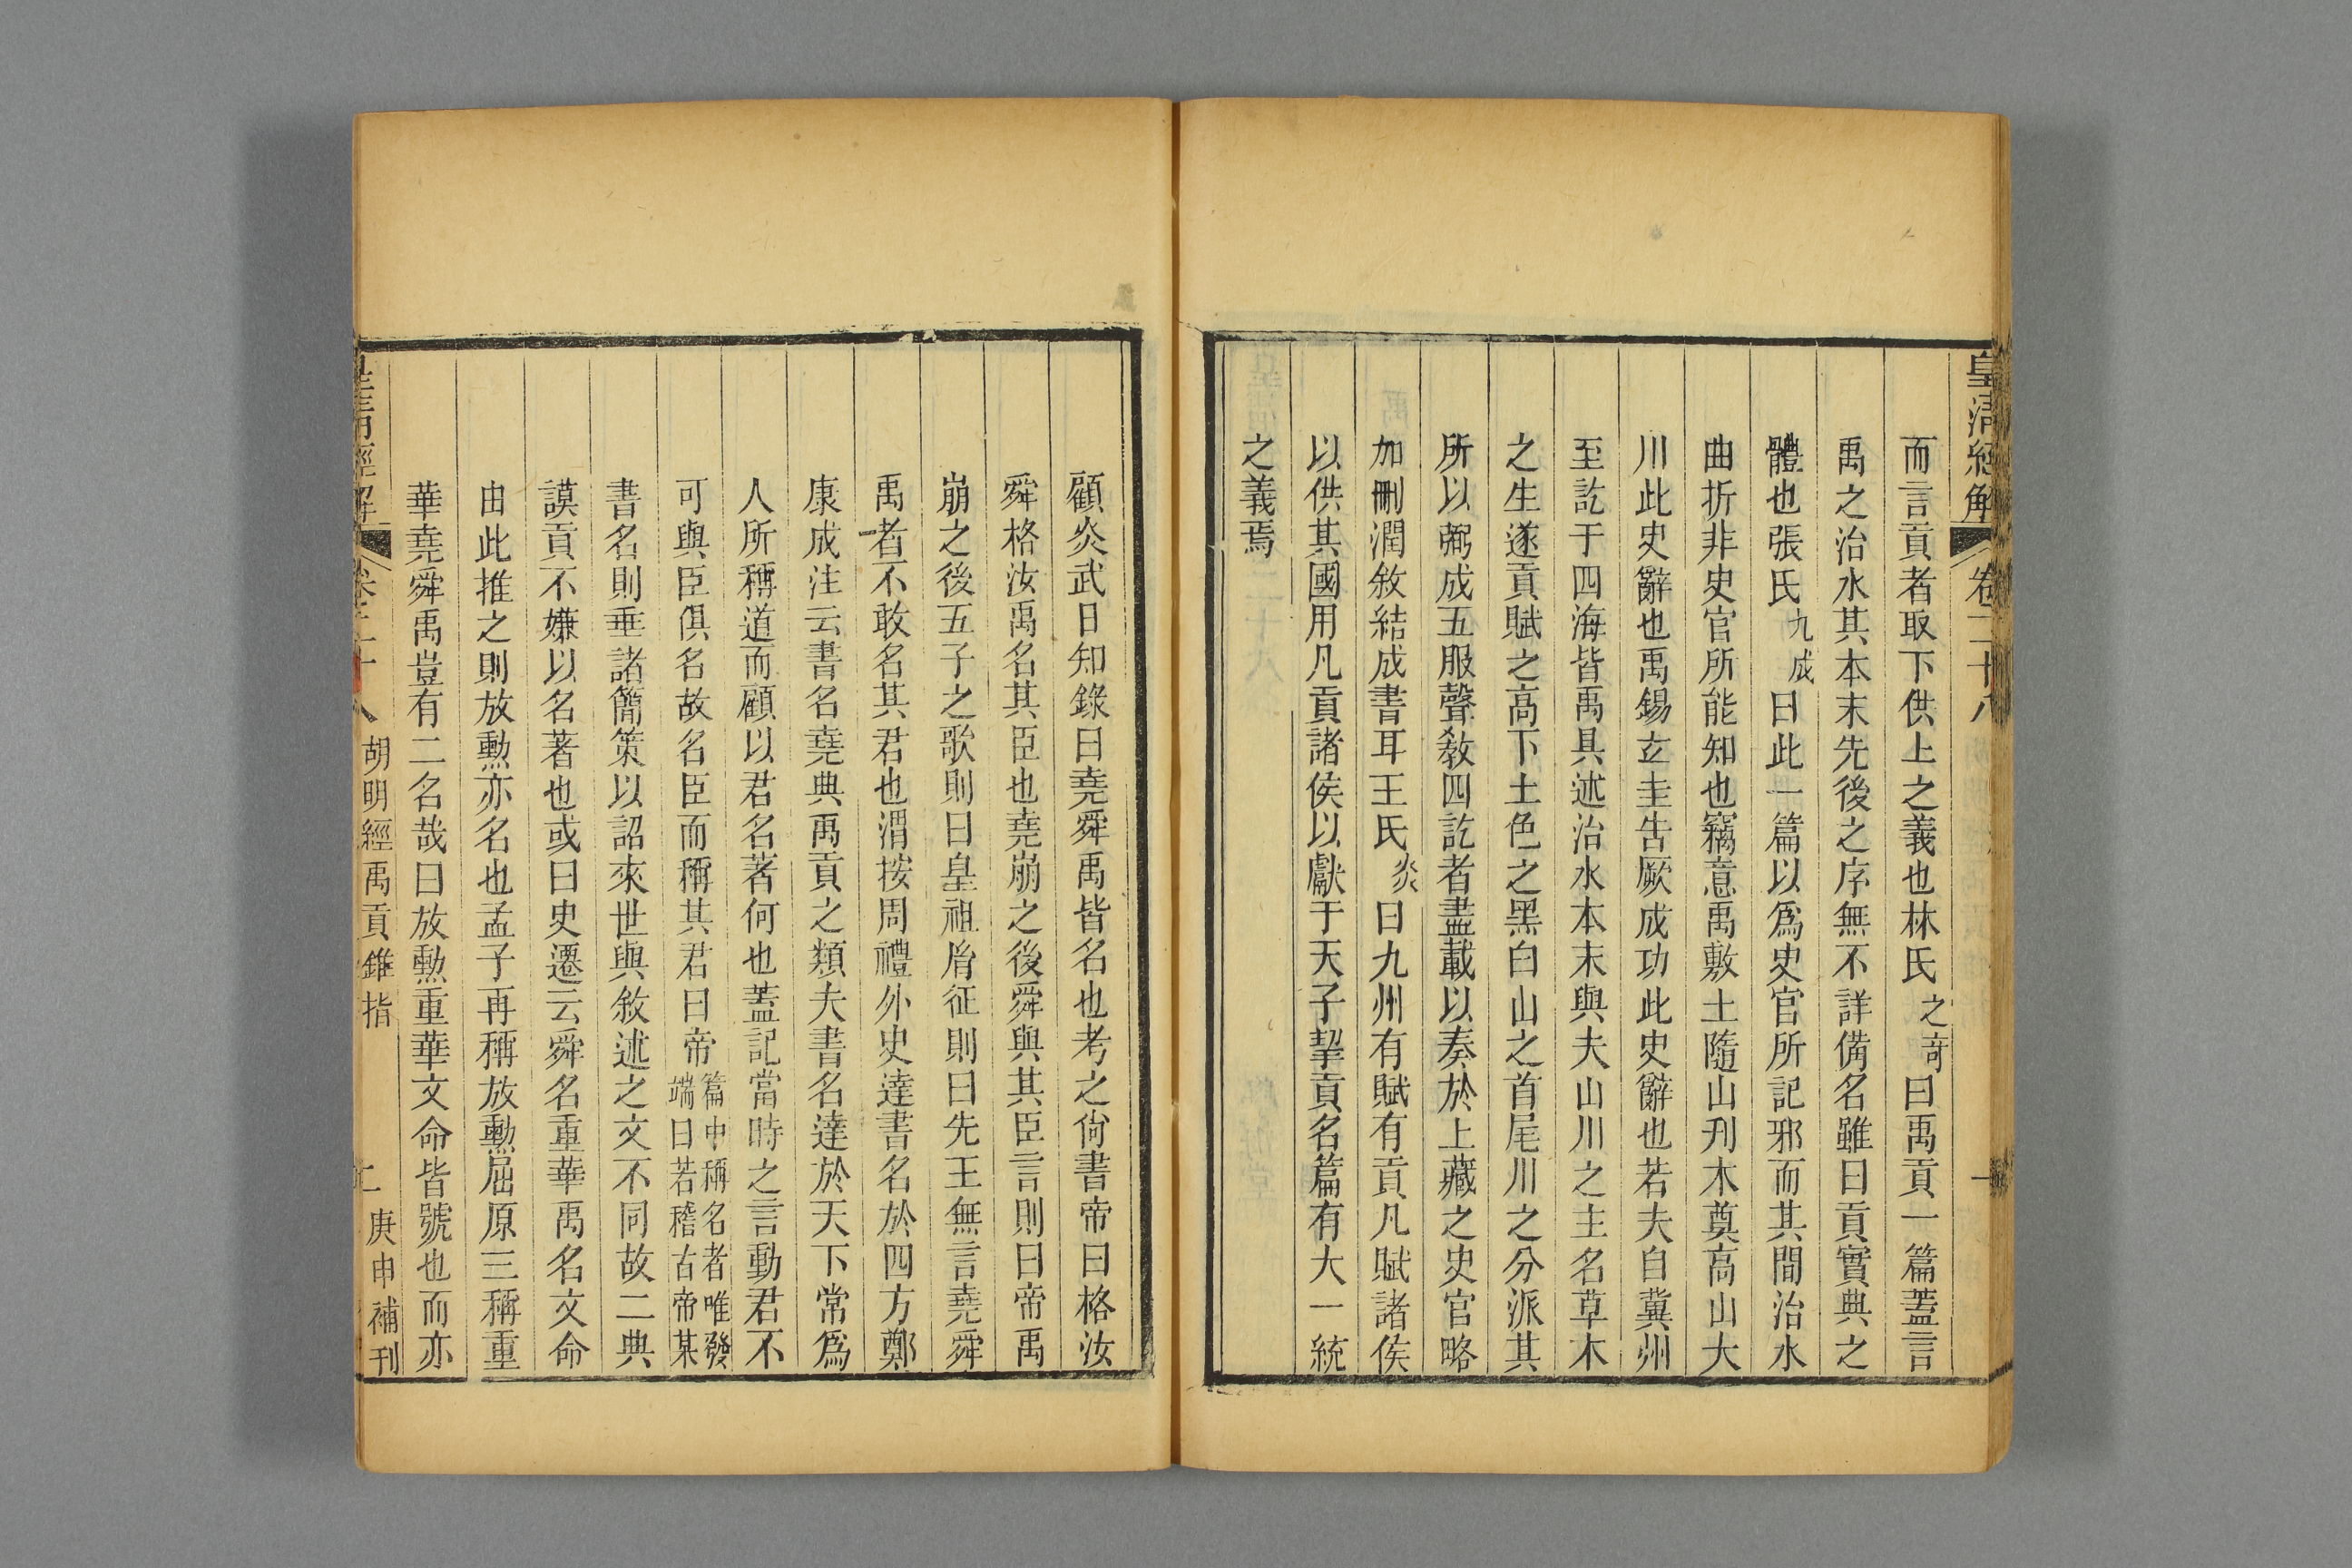 皇清經解
卷二十八
而言貢者取下供上之義也林氏之奇曰禹貢一篇蓋言
禹之治水其本末先後之序無不詳備名雖曰貢實典之
體也張氏九成曰此一篇以爲史官所記邪而其間治水
曲折非史官所能知也竊意禹敷土隨山刋木奠高山大
川此史辭也禹錫玄圭告厥成功此史辭也若夫自冀州
至訖于四海皆禹具述治水本末與夫山川之主名草木
之生遂貢賦之高下土色之黑白山之首尾川之分派其
所以弼成五服聲敎四訖者盡載以奏於上藏之史官略
加刪潤敘結成書耳王氏炎曰九州有賦有貢凡賦諸侯
以供其國用凡貢諸侯以獻于天子挈貢名篇有大一統
之義焉
顧炎武日知錄曰堯舜禹皆名也考之尙書帝曰格汝
舜格汝禹名其臣也堯崩之後舜與其臣言則曰帝禹
崩之後五子之歌則曰皇祖胤征則曰先王無言堯舜
禹者不敢名其君也渭按周禮外史達書名於四方鄭
康成注云書名堯典禹貢之類夫書名達於天下常爲
人所稱道而顧以君名著何也蓋記當時之言動君不
可與臣俱名故名臣而稱其君曰帝篇中稱名者唯發
端曰若稽古帝某
書名則垂諸簡策以詔來世與敘述之文不同故二典
謨貢不嫌以名著也或曰史遷云舜名重華禹名文命
由此推之則放勲亦名也孟子再稱放勲屈原三稱重
華堯舜禹豈有二名哉曰放勲重華文命皆號也而亦
皇淸經解
卷二十八
胡明經禹貢錐指
二
庚申補刊